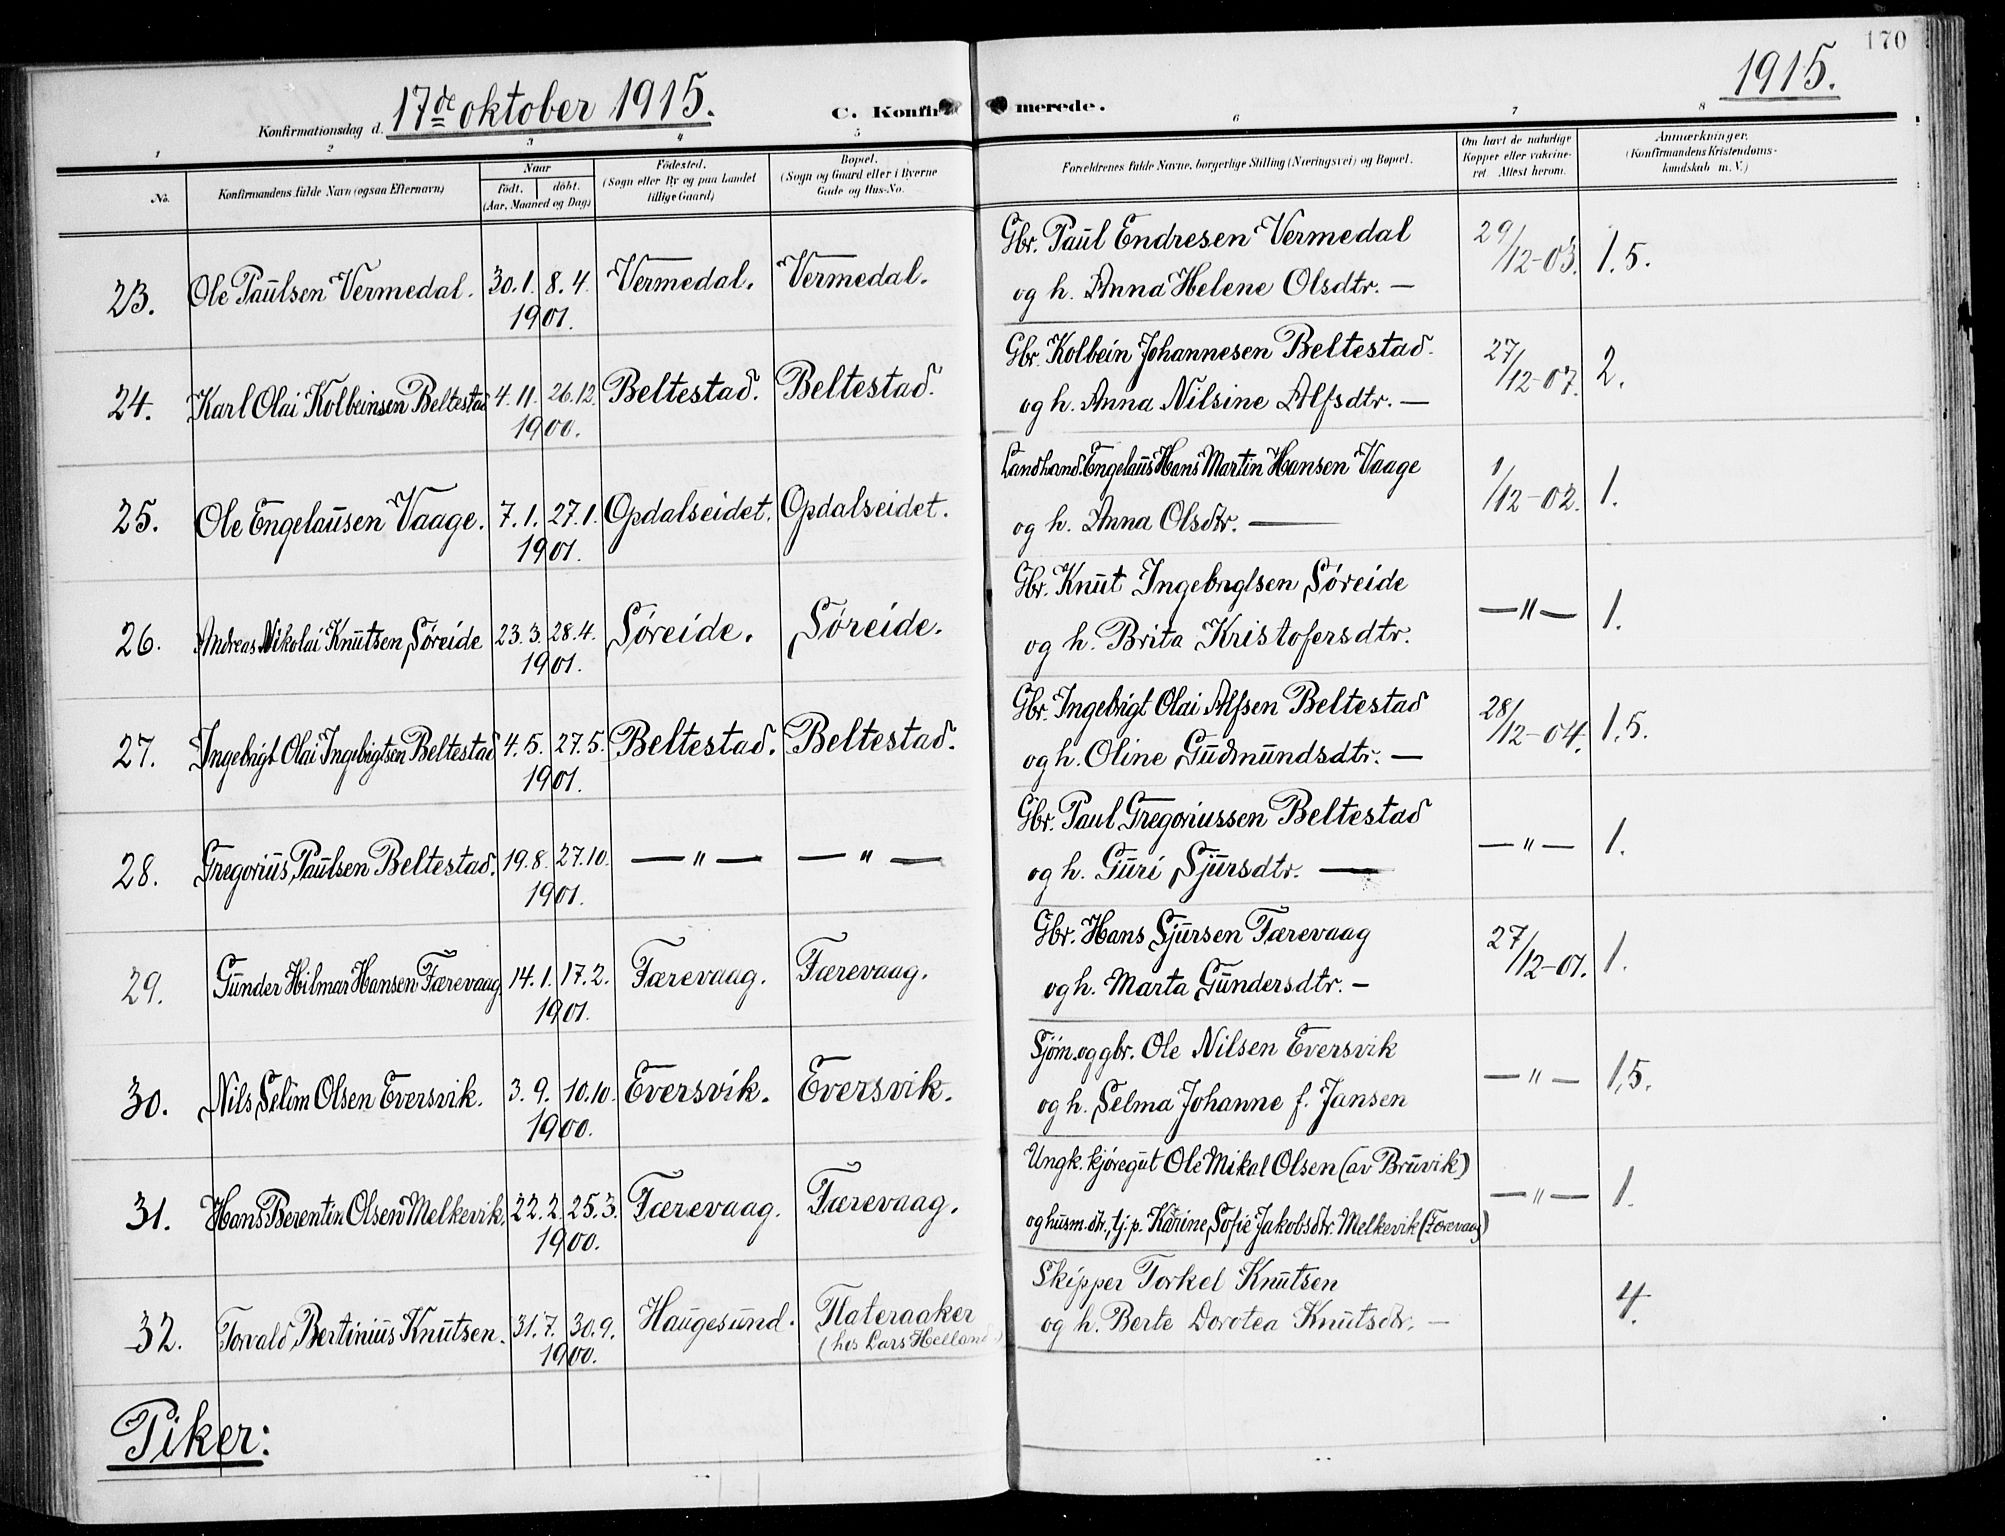 170
17de oktober 1915.
1915.
Konfirmationsdag d.
C. Konfirmerede.
1 2 3 4 5 6 7 8
No.
Konfirmandens fulde Navn (ogsaa Efternavn)
Naar
født. døbt.
(Aar, Maaned og Dag)
Fødested.
(Sogn eller By og paa Landet
tillige Gaard)
Bopæl.
(Sogn og Gaard eller i Byerne
Gade og Hus-No.
Forældrenes fulde Navne, borgerlige Stilling (Næringsvei) og Bopæl.
Om havt de naturlige
Kopper eller vakcine-
ret Attest herom.
Anmærkninger.
(Konfirmandens Kristendoms-
kundskab m. V.)
23. Ole Paulsen Vermedal. 30.1. 8.4. 1901. Vermedal. Vermedal. Gbr. Paul Endresen Vermedal
og h. Anna Helene Olsdtr. — 29/12-03. 1.5.
24. Karl Olai Kolbeinsen Beltestad 4.11. 26.12. 1900. Beltestad. Beltestad. Gbr. Kolbein Johannesen Beltestad.
og h. Anna Nilsine Alfsdtr. — 27/12-07. 2.
25. Ole Engelausen Vaage. 7.1. 27.1. 1901. Opdalseidet. Opdalseidet. Landhand. Engelaus Hans Martin Hansen Vaage
og h. Anna Olsdtr. — 1/12-02. 1.
26. Andreas Nikolai Knutsen Søreide 23.3. 28.4. 1901. Søreide. Søreide. Gbr. Knut Ingebrigtsen Søreide
og h. Brita Kristofersdtr. — " — 1.
27. Ingebrigt Olai Ingebrigtsen Beltestad 4.5. 27.5. 1901. Beltestad. Beltestad. Gbr. Ingebrigt Olai Alfsen Beltestad
og h. Oline Gudmundsdtr. — 28/12-04. 1.5.
28. Gregorius Paulsen Beltestad. 19.8. 27.10. 1901. — " — — " — Gbr. Paul Gregoriussen Beltestad
og h. Guri Sjursdtr. — — " — 1.
29. Gunder Hilmar Hansen Færevaag. 14.1. 17.2. 1901. Færevaag. Færevaag. Gbr. Hans Sjursen Færevaag
og h. Marta Gundersdtr. — 27/12-01. 1.
30. Nils Selom Olsen Eversvik. 3.9. 10.10. 1900. Eversvik. Eversvik. Sjøm. og gbr. Ole Nilsen Eversvik
og h. Selma Johanne f. Jansen — " — 1,5.
31. Hans Berentin Olsen Melkevik. 22.2. 25.3. 1900. Færevaag. Færevaag. Ungk. kjøregut Ole Mikal Olsen (av Bruvik)
og husm.dtr., tj.p. Karine Sofie Jakobsdtr. Melkevik (Færevaag) — " — 1.
32. Torvald Bertinius Knutsen. 31.7. 30.9. 1900. Haugesund. Flateraaker
(hos Lars Helland) Skipper Torkel Knutsen
og h. Berte Dorotea Knutsdtr. — 4.
Piker: